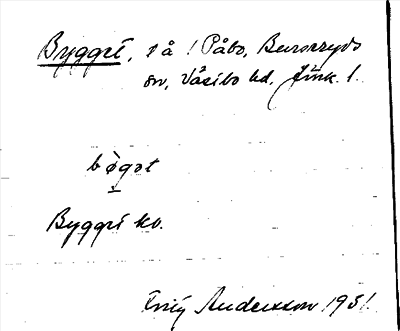 Byggri, s å ! Påbo, Burseryds
sn, Västbo hd, Jönk. l.
bøgət
Byggri ko.
Andersson 1951.